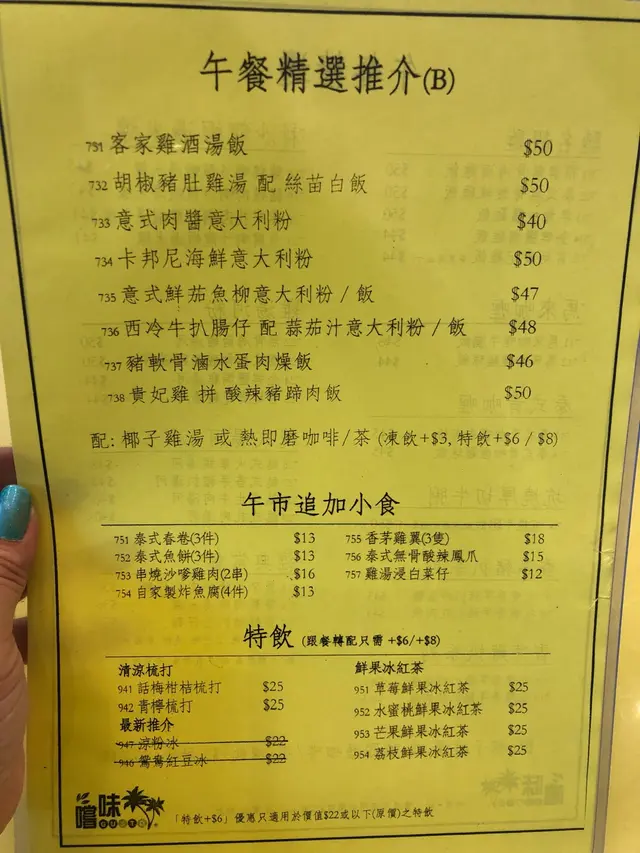 午餐精選推介(B)
731 客家雞酒湯飯 $50
732 胡椒豬肚雞湯 配 絲苗白飯 $50
733 意式肉醬意大利粉 $40
734 卡邦尼海鮮意大利粉 $50
735 意式鮮茄魚柳意大利粉 / 飯 $47
736 西冷牛扒腸仔 配 蒜茄汁意大利粉 / 飯 $48
737 豬軟骨滷水蛋肉燥飯 $46
738 貴妃雞 拼 酸辣豬蹄肉飯 $50
配: 椰子雞湯 或 熱即磨咖啡/茶 (凍飲+$3, 特飲+$6 / $8)
午市追加小食
751 泰式春卷(3件) $13
752 泰式魚餅(3件) $13
753 串燒沙嗲雞肉(2串) $16
754 自家製炸魚腐(4件) $13
755 香茅雞翼(3隻) $18
756 泰式無骨酸辣鳳爪 $15
757 雞湯浸白菜仔 $12
特飲 (跟餐轉配只需 +$6/+$8)
清涼梳打
941 話梅柑桔梳打 $25
942 青檸梳打 $25
最新推介
947 涼粉冰 $22
946 鴛鴦紅豆冰 $22
鮮果冰紅茶
951 草莓鮮果冰紅茶 $25
952 水蜜桃鮮果冰紅茶 $25
953 芒果鮮果冰紅茶 $25
954 荔枝鮮果冰紅茶 $25
嚐味
GUSTO
「特飲+$6」優惠只適用於價值$22或以下(原價)之特飲